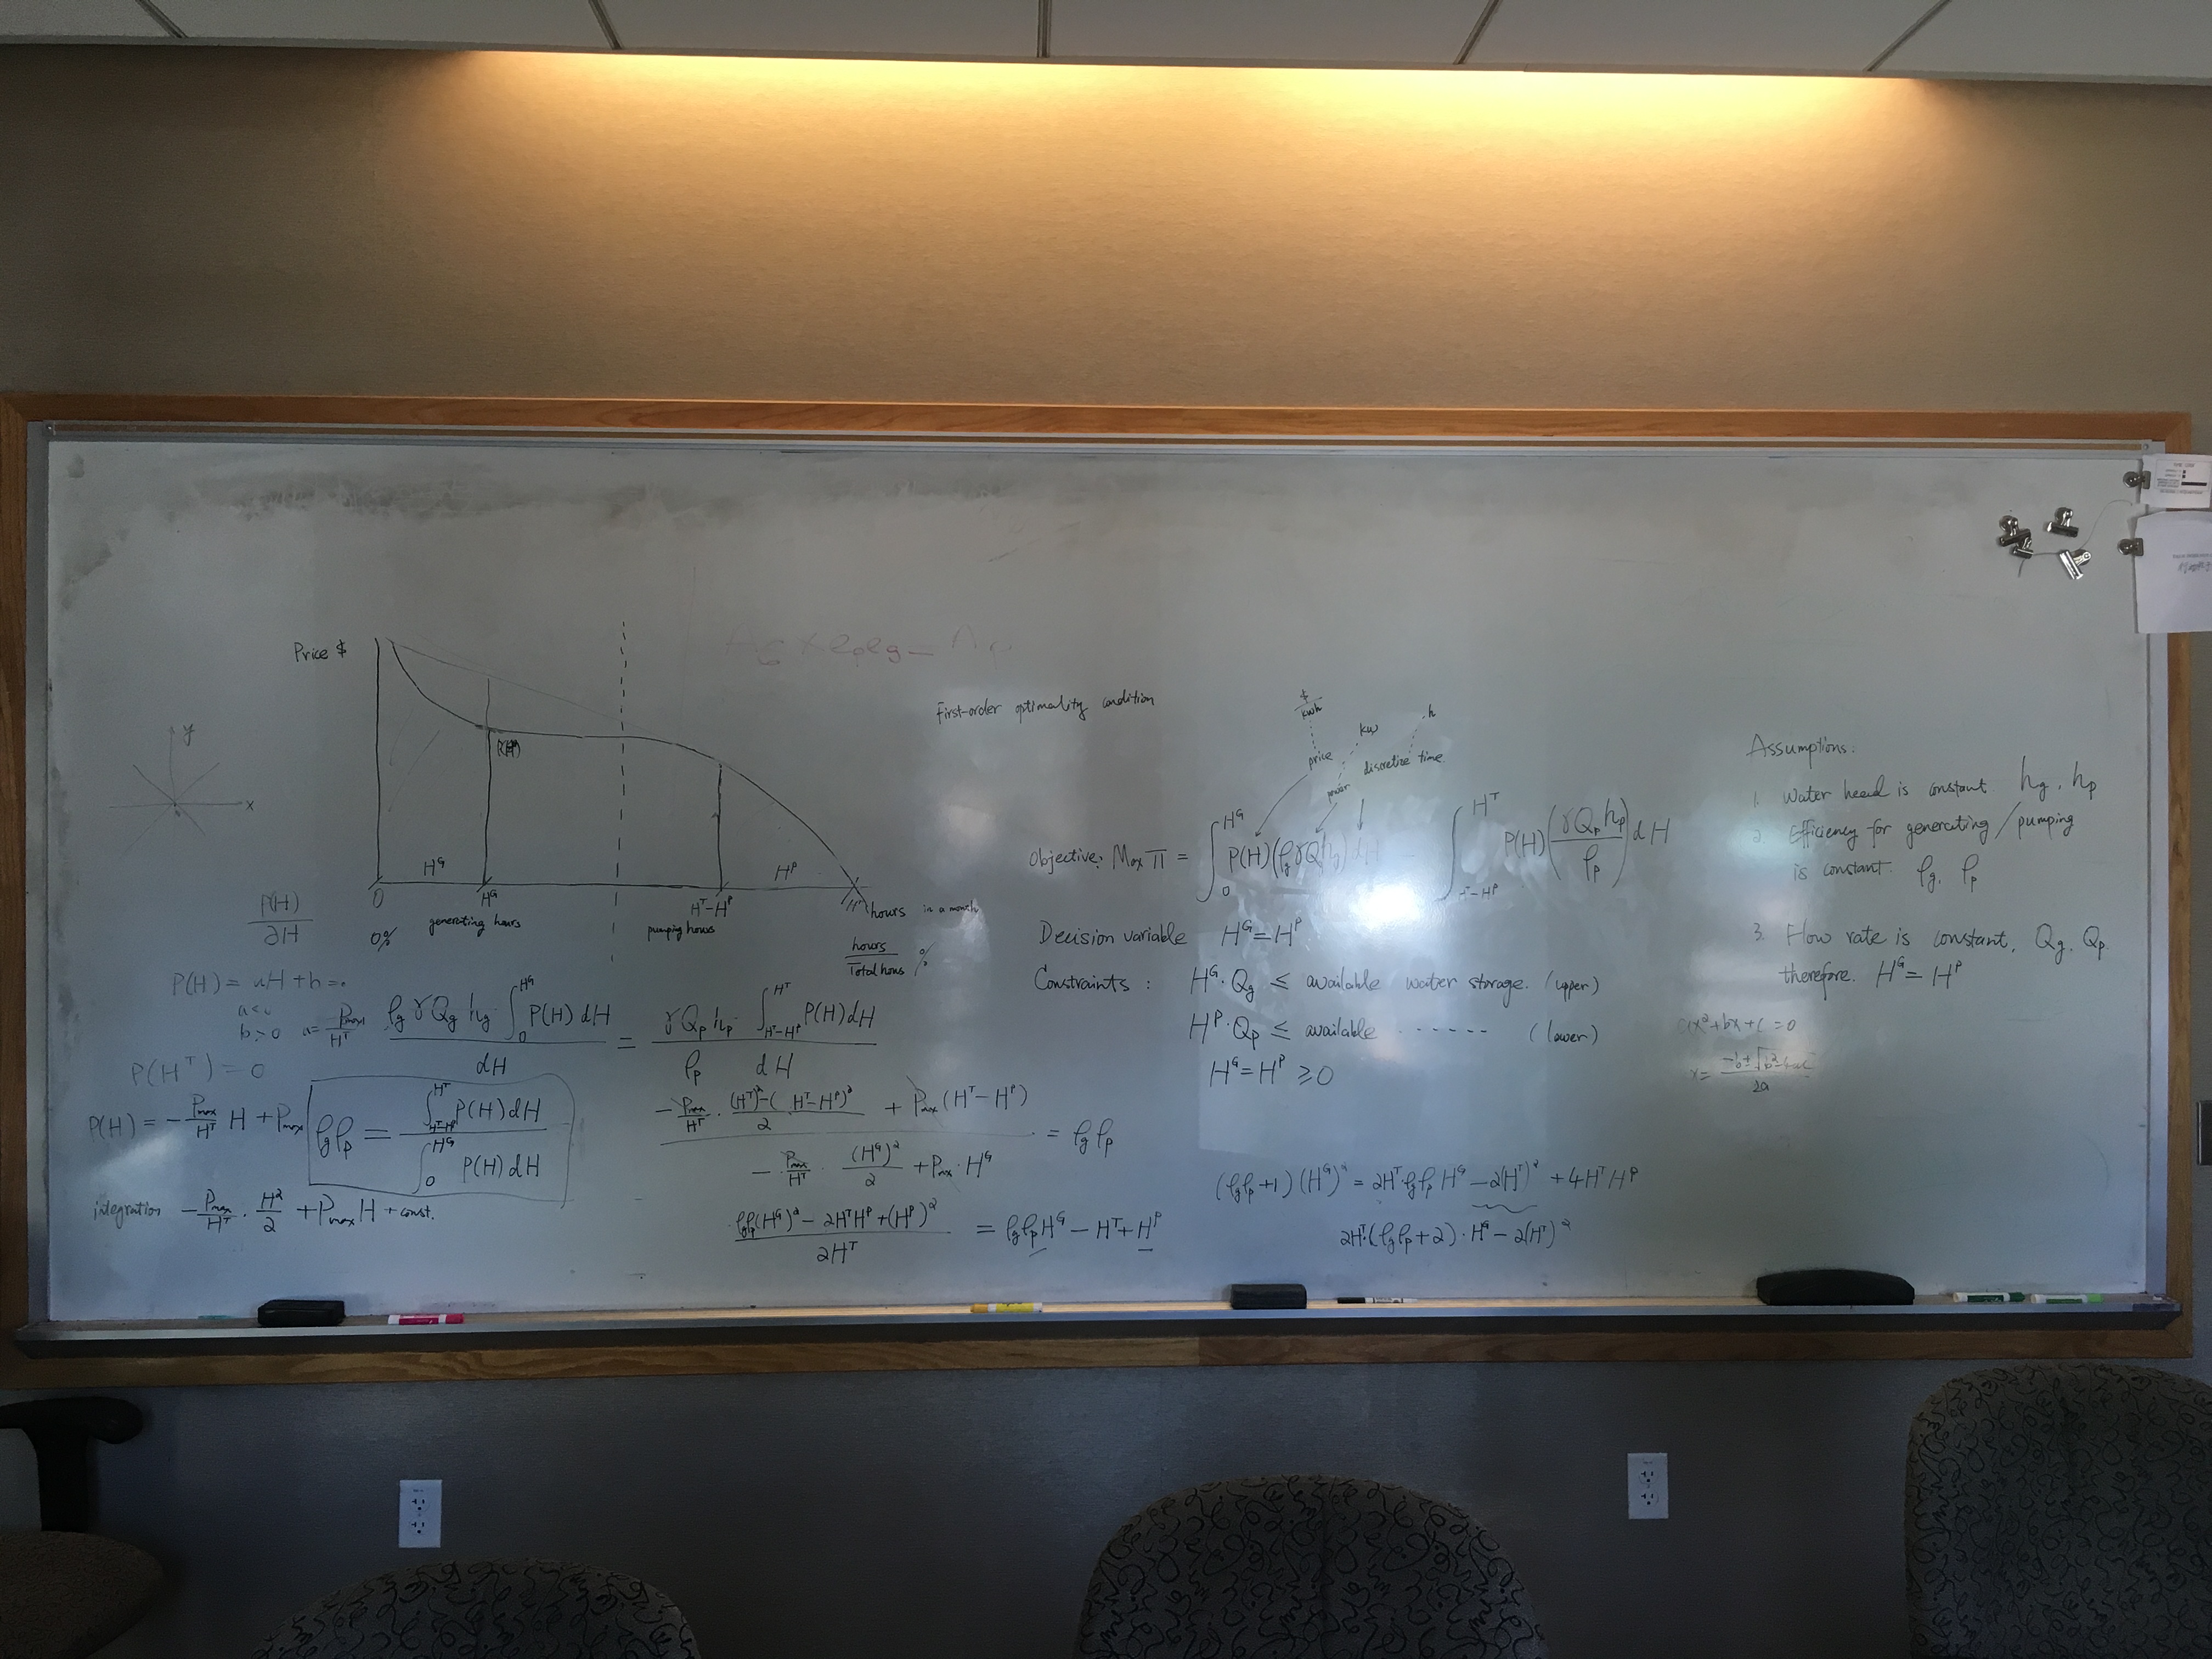 Price $
P(H)
y
x
H^G
H^P
0
H^G
H^T-H^P
H^T
hours in a month
0%
generating hours
pumping hours
hours / Total hours %
P(H) / ∂H
P(H) = aH + b = 0
a<0
b>0 a = Pmax / H^T
P(H^T) = 0
P(H) = - Pmax/H^T H + Pmax
integration - Pmax/H^T · H²/2 + Pmax H + const.
ρg γ Qg hg · ∫_0^{H^G} P(H) dH / dH = γ Qp hp · ∫_{H^T-H^P}^{H^T} P(H) dH / ρp dH
ρg ρp = ∫_{H^T-H^P}^{H^T} P(H) dH / ∫_0^{H^G} P(H) dH
- Pmax/H^T · (H^T)²-(H^T-H^P)² / 2 + Pmax (H^T-H^P) / - Pmax/H^T · (H^G)²/2 + Pmax · H^G = ρg ρp
ρgρp(H^G)² - 2H^T H^P + (H^P)² / 2H^T = ρgρp H^G - H^T + H^P
First-order optimality condition
$/kwh
kw
h
price
power
discretize time.
Objective: Max π = ∫_0^{H^G} P(H)(ρg γ Qg hg) dH - ∫_{H^T-H^P}^{H^T} P(H)(γ Qp hp / ρp) dH
Decision variable H^G = H^P
Constraints : H^G · Qg ≤ available water storage. (upper)
H^P · Qp ≤ available - - - - - - (lower)
H^G = H^P ≥ 0
(ρgρp+1)(H^G)² = 2H^T·ρgρp H^G - 2(H^T)² + 4H^T H^P
2H^T·(ρgρp+2)·H^G - 2(H^T)²
Assumptions:
1. Water head is constant hg, hp
2. Efficiency for generating / pumping
is constant. ρg, ρp
3. Flow rate is constant, Qg. Qp.
therefore. H^G = H^P
ax²+bx+c = 0
x = -b±√b²-4ac / 2a